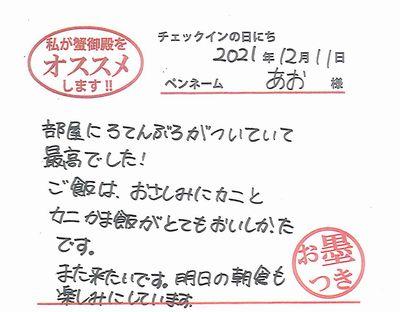 私が蟹御殿を
オススメ
します!!
チェックインの日にち
2021年12月11日
ペンネーム あお 様
部屋にろてんぶろがついていて
最高でした!
ご飯は、おさしみにカニと
カニかま飯がとてもおいしかた
です。
また来たいです。明日の朝食も
楽しみにしています。
お墨
つき